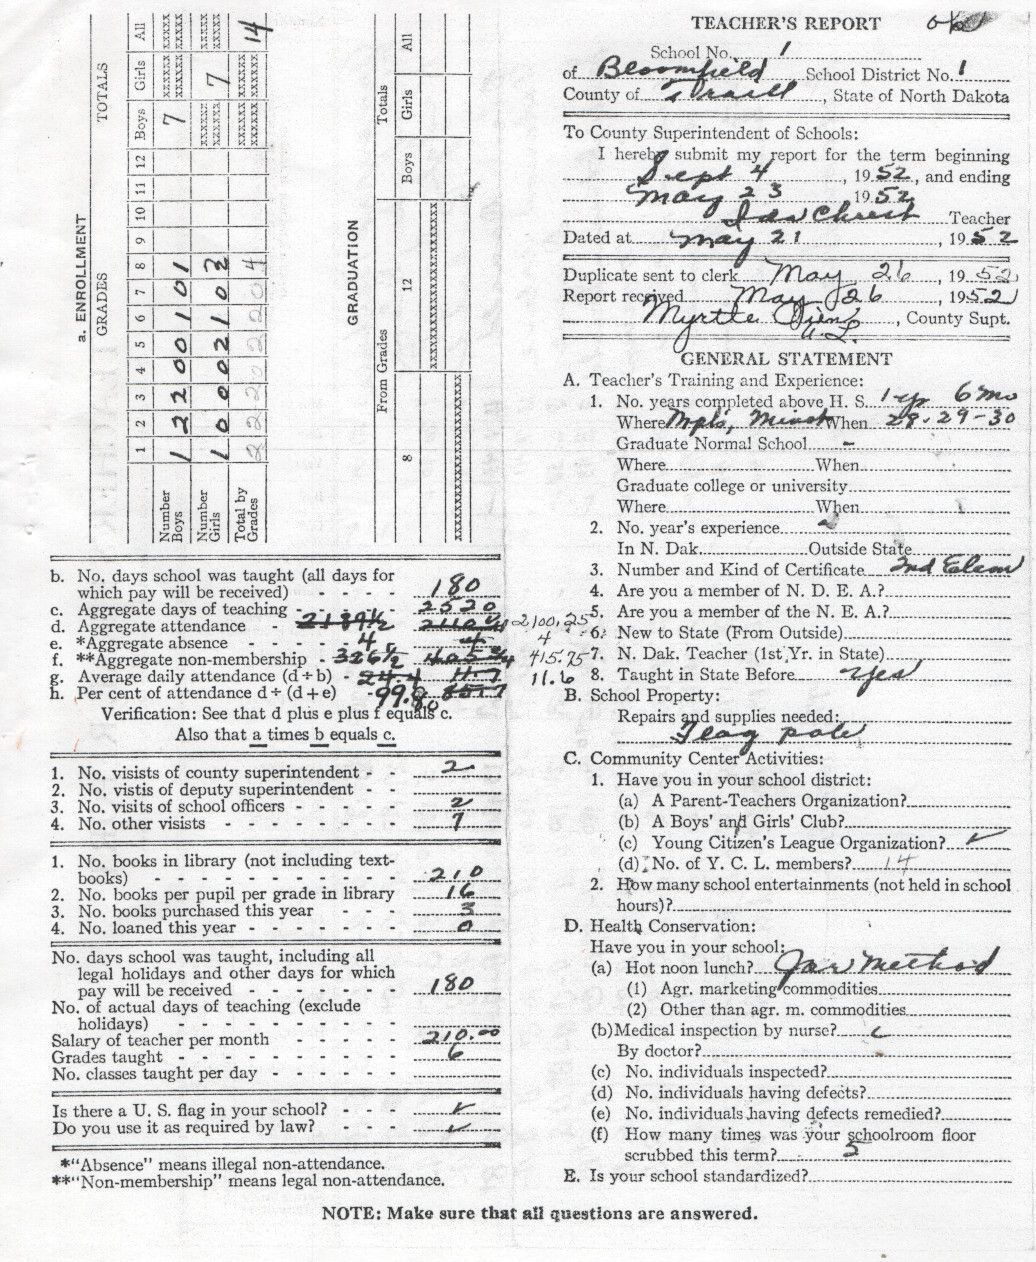 TEACHER'S REPORT
School No. 1
of Bloomfield School District No. 1
County of Traill, State of North Dakota
To County Superintendent of Schools:
I hereby submit my report for the term beginning
Sept 4, 1952, and ending
May 23 1952
Ida Chrest Teacher
Dated at May 21, 1952
Duplicate sent to clerk May 26, 1952
Report received May 26, 1952
Myrtle, County Supt.
GENERAL STATEMENT
A. Teacher's Training and Experience:
1. No. years completed above H. S. 1 yr 6 mo
Where Mpls, When 28-29-30
Graduate Normal School -
Where When
Graduate college or university
Where When
2. No. year's experience
In N. Dak. Outside State
3. Number and Kind of Certificate 2nd Elem
4. Are you a member of N. D. E. A.?
5. Are you a member of the N. E. A.?
6. New to State (From Outside)
7. N. Dak. Teacher (1st Yr. in State)
8. Taught in State Before Yes
B. School Property:
Repairs and supplies needed:
Flag pole
C. Community Center Activities:
1. Have you in your school district:
(a) A Parent-Teachers Organization?
(b) A Boys' and Girls' Club?
(c) Young Citizen's League Organization? ✓
(d) No. of Y. C. L. members? 14
2. How many school entertainments (not held in school
hours)?
D. Health Conservation:
Have you in your school:
(a) Hot noon lunch? Jar method
(1) Agr. marketing commodities
(2) Other than agr. m. commodities
(b) Medical inspection by nurse?
By doctor?
(c) No. individuals inspected?
(d) No. individuals having defects?
(e) No. individuals having defects remedied?
(f) How many times was your schoolroom floor
scrubbed this term? 5
E. Is your school standardized?
a. ENROLLMENT
GRADES TOTALS
1 2 3 4 5 6 7 8 9 10 11 12 Boys Girls All
Number Boys 1 2 2 0 0 1 0 1 7 xxxxx xxxxx
Number Girls 1 0 0 0 2 1 0 2 xxxxx 7 xxxxx
Total by Grades 2 2 2 0 2 2 0 4 xxxxx xxxxx 14
GRADUATION
From Grades Totals
8 12 Boys Girls All
b. No. days school was taught (all days for
which pay will be received) 180
c. Aggregate days of teaching 2520
d. Aggregate attendance 2189½ 2100.25
e. *Aggregate absence 4 4 4
f. **Aggregate non-membership 326½ 415.75
g. Average daily attendance (d ÷ b) 11.7 11.6
h. Per cent of attendance d ÷ (d + e) 99.80
Verification: See that d plus e plus f equals c.
Also that a times b equals c.
1. No. visists of county superintendent 2
2. No. vistis of deputy superintendent
3. No. visits of school officers 2
4. No. other visists 7
1. No. books in library (not including text-
books) 210
2. No. books per pupil per grade in library 16
3. No. books purchased this year 3
4. No. loaned this year 0
No. days school was taught, including all
legal holidays and other days for which
pay will be received 180
No. of actual days of teaching (exclude
holidays)
Salary of teacher per month 210.00
Grades taught 6
No. classes taught per day
Is there a U. S. flag in your school? ✓
Do you use it as required by law? ✓
*"Absence" means illegal non-attendance.
**"Non-membership" means legal non-attendance.
NOTE: Make sure that all questions are answered.